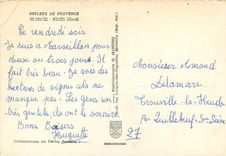 REFLETS DE PROVENCE
Ce vendredi soir
Je suis à Marseillan pour
deux ou trois jours. Il
fait très beau. Je vois des
hectares de vignes cela ne
manque pas. Les gens sont
très gentils, ils ont le sourire
Bons Baisers
Huguette
Monsieur Armand
Delamare
Trouville-la-Haule
par Quillebeuf-sur-Seine
27